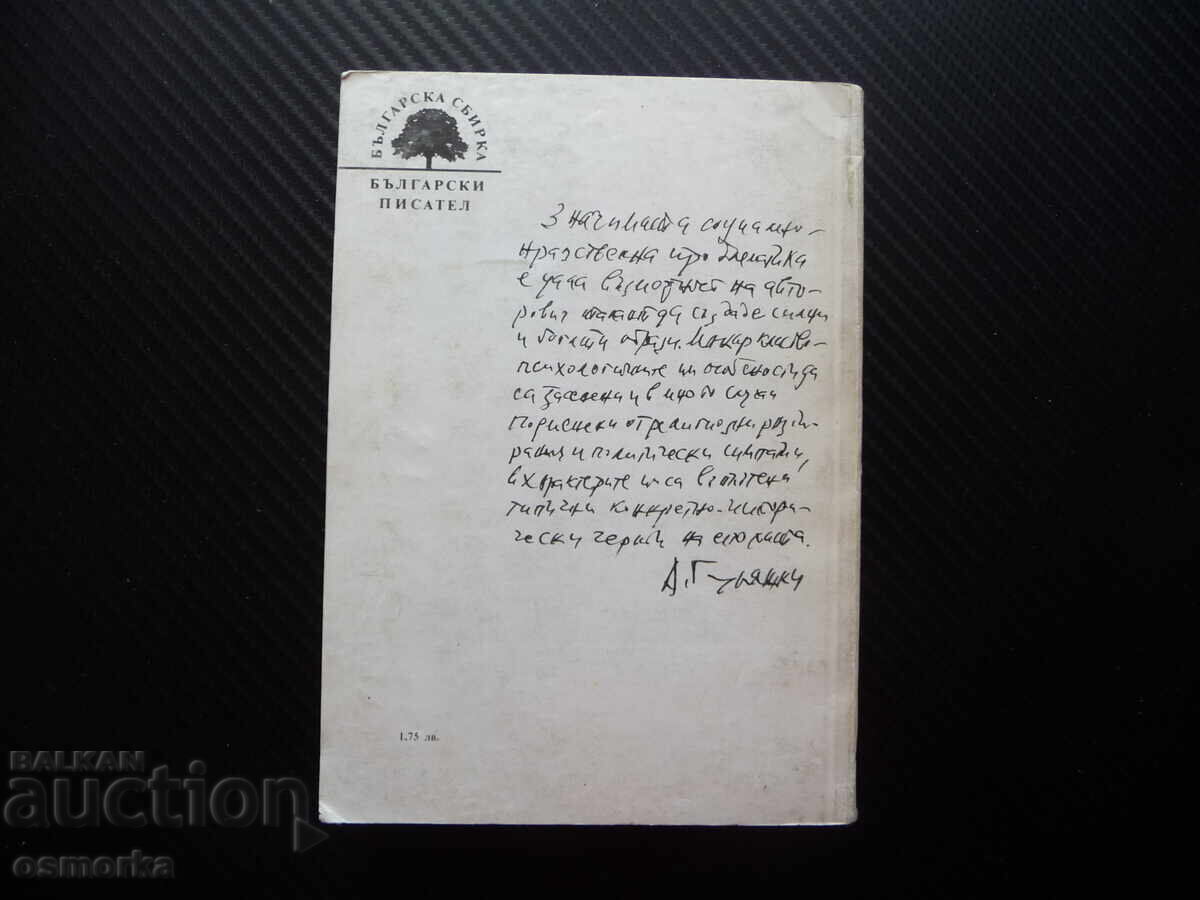 БЪЛГАРСКА СБИРКА
БЪЛГАРСКИ
ПИСАТЕЛ
Значимата социално-
нравствена проблематика
е дала възможност на авто-
ровия талант да създаде силни
и богати образи. Макар класово-
психологичните им особености да
са заложени и в много случаи
подменени от религиозни
и политически симпатии,
в характерите им са въплътени
типични конкретно-истори-
чески черти на епохата.
А. Гуляшки
1.75 лв.
BALKAN
auction
osmorka